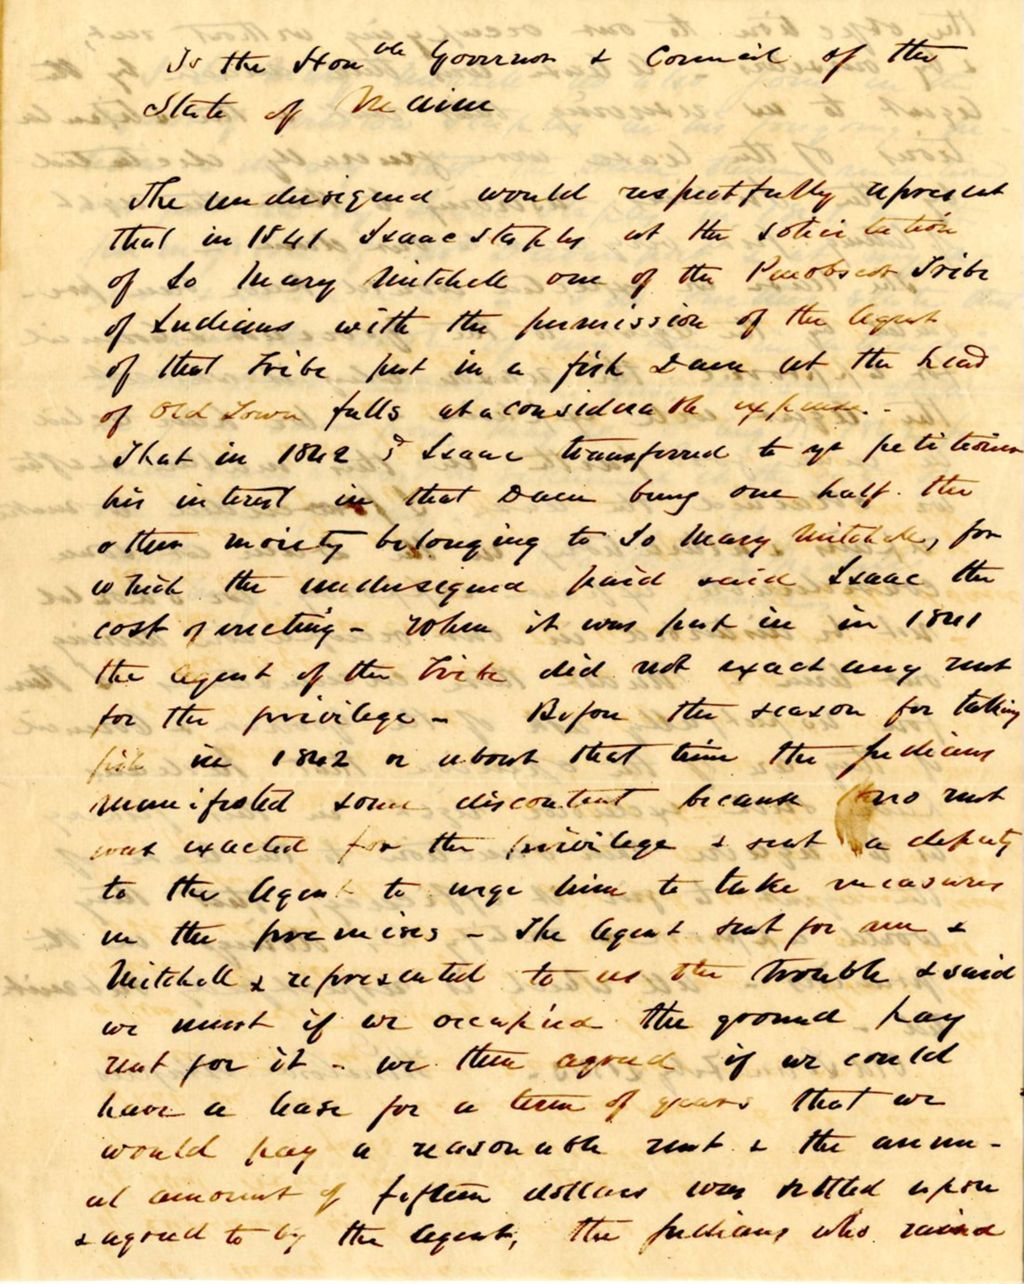 To the Honble Governor & Council of the
State of Maine
The undersigned would respectfully represent
that in 1841 Isaac Staples at the solicitation
of So Mary Mitchell one of the Penobscot Tribe
of Indians with the permission of the Agent
of that Tribe put in a fish Dam at the head
of Old Town falls at a considerable expense. -
That in 1842 sd Isaac transferred to yr petitioner
his interest in that Dam being one half. the
other moiety belonging to So Mary Mitchell, for
which the undersigned paid said Isaac the
cost of erecting - When it was put in in 1841
the Agent of the Tribe did not exact any rent
for the privilege - Before the season for taking
fish in 1842 or about that time the Indians
manifested some discontent because no rent
was exacted for the privilege & sent a deputy
to the Agent to urge him to take measures
in the premises - The Agent sent for me &
Mitchell & represented to us the trouble & said
we must if we occupied the ground pay
rent for it - we then agreed if we could
have a lease for a term of years that we
would pay a reasonable rent & the annu-
al amount of fifteen dollars was settled upon
& agreed to by the Agent, the Indians who raised